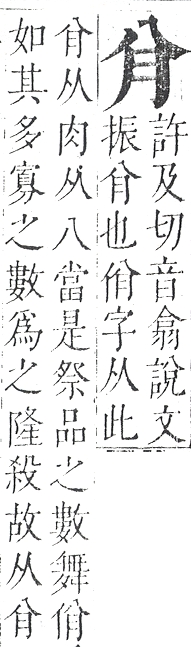 䏌
許及切音翕說文
振䏌也佾字从此
䏌从肉从八當是祭品之數舞佾
如其多寡之數爲之隆殺故从䏌